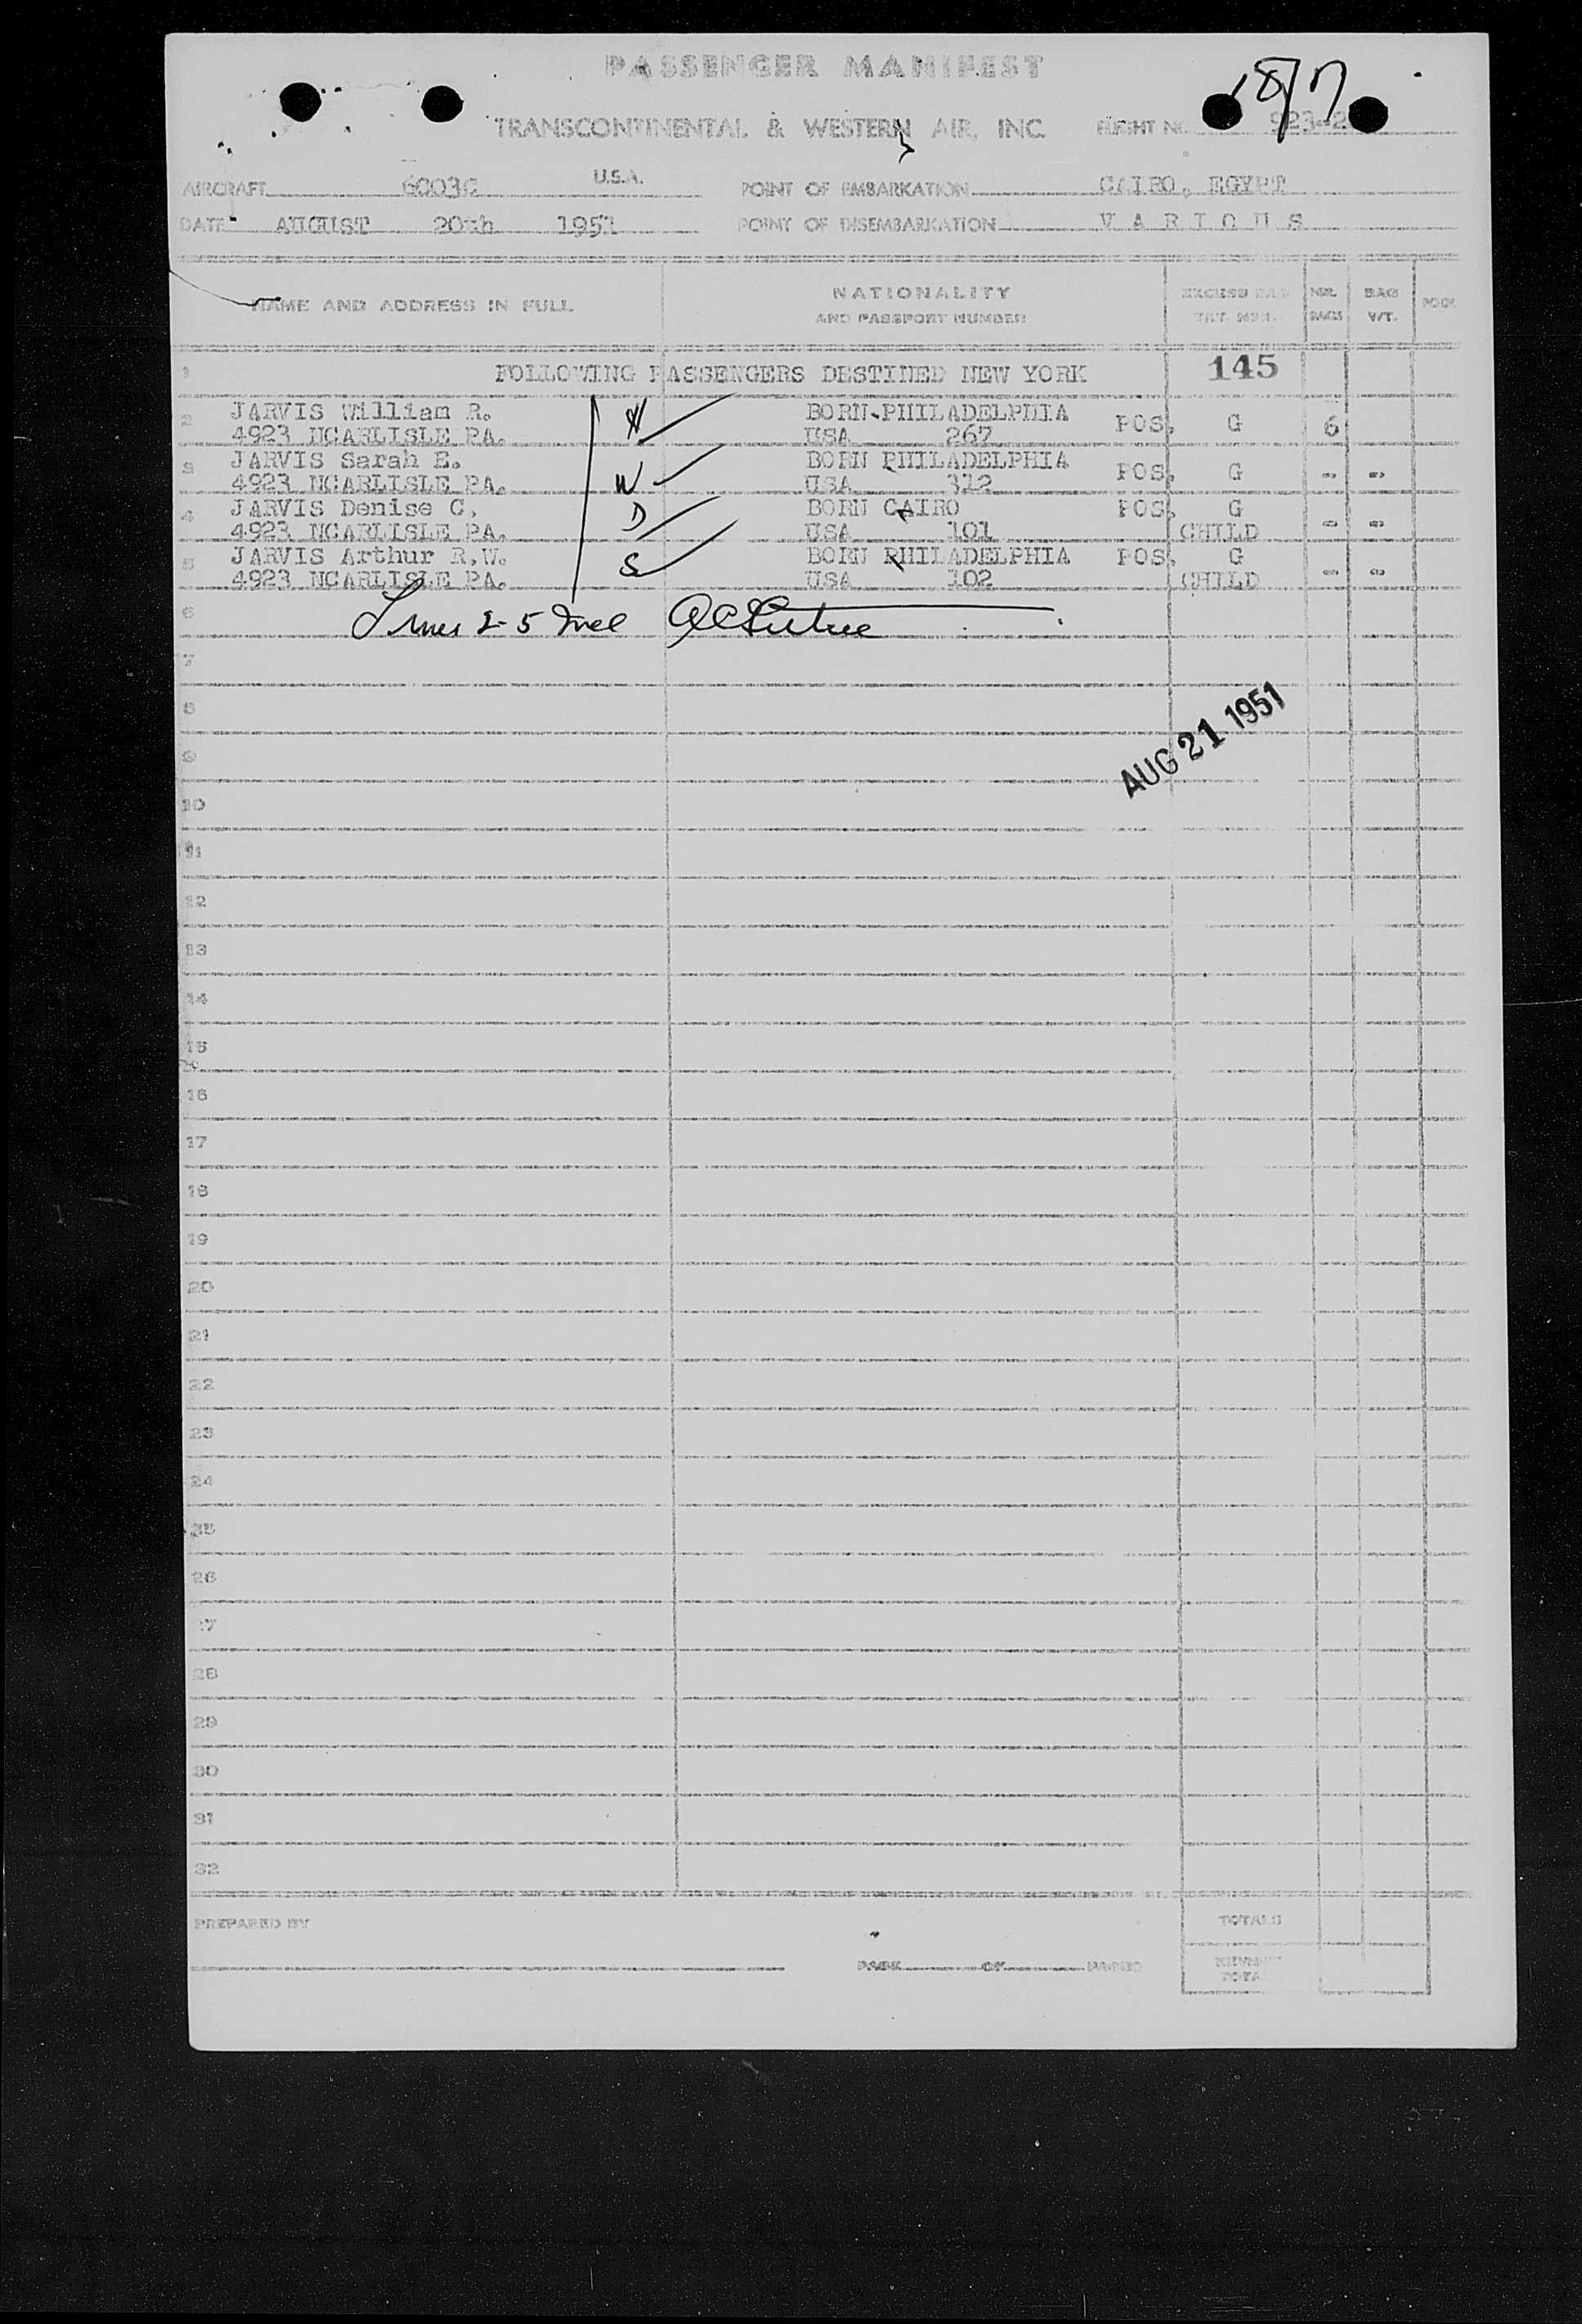 PASSENGER MANIFEST
8/7
TRANSCONTINENTAL & WESTERN AIR, INC. FLIGHT NO. 923-2
AIRCRAFT 6003C U.S.A. POINT OF EMBARKATION CAIRO, EGYPT
DATE AUGUST 20th 1951 POINT OF DISEMBARKATION V A R I O U S
NAME AND ADDRESS IN FULL
NATIONALITY
AND PASSPORT NUMBER
EXCESS BAG
TKT. NBR.
NBR.
BAGS
BAG
WT.
POOL
1 FOLLOWING PASSENGERS DESTINED NEW YORK 145
2 JARVIS William R. H BORN PHILADELPHIA POS. G 6
4923 NCARLISLE PA. USA 267
3 JARVIS Sarah E. W BORN PHILADELPHIA POS. G - -
4923 NCARLISLE PA. USA 312
4 JARVIS Denise C. D BORN CAIRO POS. G
4923 NCARLISLE PA. USA 101 CHILD - -
5 JARVIS Arthur R.W. S BORN PHILADELPHIA POS. G
4923 NCARLISLE PA. USA 102 CHILD - -
6 Lines 2-5 Incl
7
8
AUG 21 1951
9
10
11
12
13
14
15
16
17
18
19
20
21
22
23
24
25
26
27
28
29
30
31
32
PREPARED BY TOTALS
PAGE OF PAGES
TOTAL